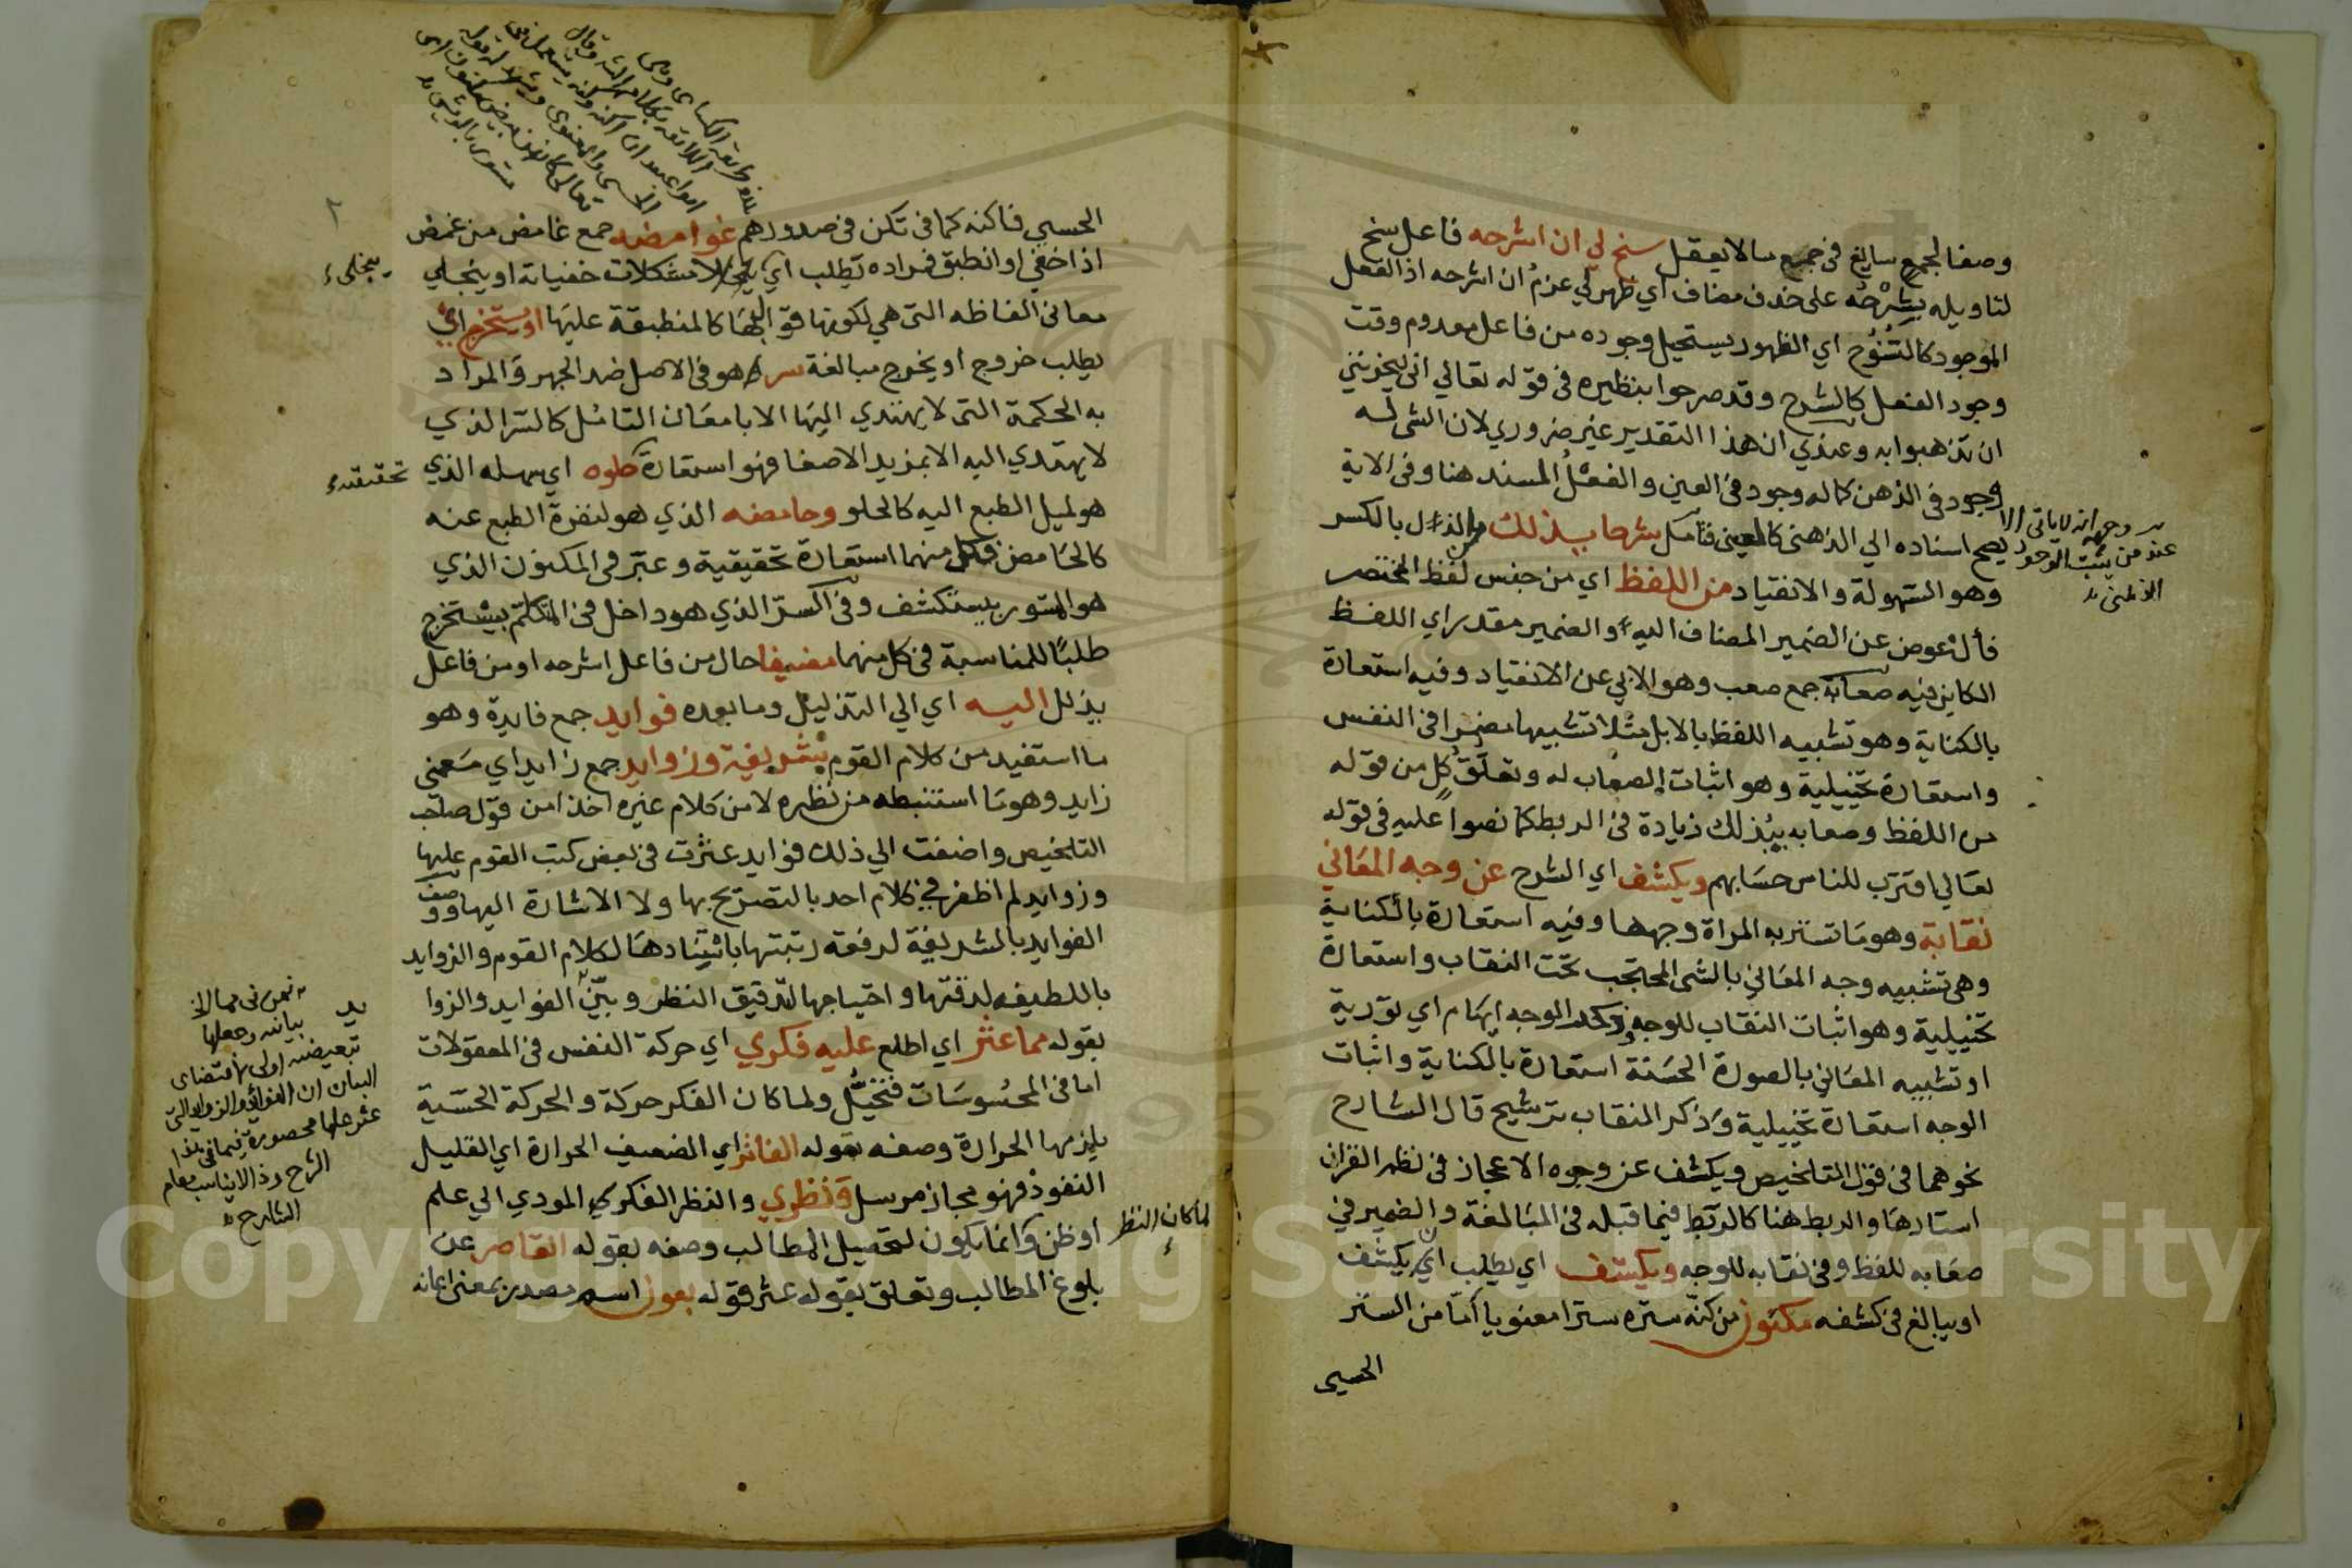 وصفا لجمع سايغ في جميع مالا يعقل سنح لي ان اشرحه فاعل سنح
لتاويله بشرْحُه على حذف مضاف اي ظهر لي عزمُ ان اشرحه اذ الفعل
الموجود كالسُّنُوُح اي الظهور يستحيل وجوده من فاعل معدوم وقت
وجود الفعل كالشرح وقد صرحوا بنظيره في قوله تعالي اني ليحزنني
ان تذهبوا به وعندي ان هذا التقدير غير ضروري لان الشى له
وجود في الذهن كما له وجود في العين والفعْلُ المسند هنا وفي الاية
يصح اسناده الي الذهنى كالعينى فتامل شرحا يـذلك من الذل بالكسر
وهو السهولة والانقياد من اللفظ اي من جنس لفظ المختصر
فأل عوض عن الضمير المضاف اليه او الضمير مقدر اي اللفظ
الكاين فيه صعابه جمع صعب وهو الابي عن الانقياد وفيه استعارة
بالكناية وهو تشبيه اللفظ بالابل مثلا تشبيها مضمرا في النفس
واستعارة تخييلية وهو اثبات الصعاب له وتعلُّقُ كلٍ من قوله
من اللفظ وصعابه بيُذلك زيادة في الربط كما نصوا عليه في قوله
تعالي اقترب للناس حسابهم ويكشف اي الشرح عن وجه المعاني
نقابة وهو ما تستتر به المراة وجهها وفيه استعارة بالكناية
وهى تشبيه وجه المعاني بالشى المحتجب تحت النقاب واستعارة
تخييلية وهو اثبات النقاب للوجه وذكر الوجه ايهام اي تورية
او تشبيه المعاني بالصورة الحسنة استعارة بالكناية واثبات
الوجه استعارة تخييلية وذكر النقاب ترشيح قال الشارح
نحوهما في قول التلخيص ويكشف عن وجوه الاعجاز في نظم القران
استارها والربط هنا كالربط فيما قبله في المبالغة والضمير في
صعابه للفظ وفي نقابه للوجه ويكشف اي يطلب ان يكشف
او يبالغ في كشفه مكنون من كنّه ستره سترا معنويا أمّا من الستر
الحسى
وجهه انه لا ياتى الا
عند من يثبت الوجود
الذهنى
الحسي فاكنه كما في تكن في صدورهم غوامضه جمع غامض من غمض
اذا خفي او انطبق
معاني الفاظه التى هي لكونها قوالبها كالمنطبقة عليها او يستخرج اي
يطلب خروج او يخرج مبالغة سر هو في الاصل ضد الجهر والمراد
به الحكمة التى لا يهتدي اليها الا بامعان التامل كالسر الذي
لا يهتدي اليه الا بمزيد الاصغا فهو استعارة حلوه اي سهله الذي
هو لميل الطبع اليه كالحلو وحامضه الذي هو لنفرة الطبع عنه
كالحامض فكل منهما استعارة تحقيقية وعبّر في المكنون الذي
هو المستور بيستكشف وفي السرّ الذي هو داخل في المتكتم بيستخرج
طلبًا للمناسبة في كل منهما مضيفا حال من فاعل اشرحه او من فاعل
يذلل اليه اي الي التذليل وما بعده فوايد جمع فايدة وهو
ما استفيد من كلام القوم شريفة وزوايد جمع زايد اي معني
زايد وهو ما استنبطه من نظره لا من كلام غيره اخذا من قول صاحب
التلخيص واضفت الي ذلك فوايد عثرت في بعض كتب القوم عليها
وزوايد لم اظفر في كلام احد بالتصريح بها ولا الاشارة اليها ووصف
الفوايد بالشريفة لرفعة رتبتها باستنادها لكلام القوم والزوايد
باللطيفه لدقتها واحتياجها لتدقيق النظر وبيّن الفوايد والزوا
يد
بقوله مما عثر اي اطلع عليه فكري اي حركة النفس في المعقولات
اما في المحسوسات فتخيُّل ولما كان الفكر حركة والحركة الحسّية
يلزمها الحرارة وصفه بقوله الفاتر اي الضعيف الحرارة اي القليل
النفوذ فهو مجاز مرسل ونظري والنظر الفكر المودي الي علم
او ظن وانما يكون لتحصيل المطالب وصفه بقوله القاصر عن
بلوغ المطالب وتعلق بقوله عثر قوله بعون اسم مصدر بمعنى اعانه
يتجلى
تحقيقيه
لما كان النظر
بيانيه وجعلها
تبعيضيه اولى لاقتضاى
البيان ان الفوايد والزوايد التى
عثر عليها محصورة فيما في هذا
الشرح وذا لا يناسب مقام
الشارح